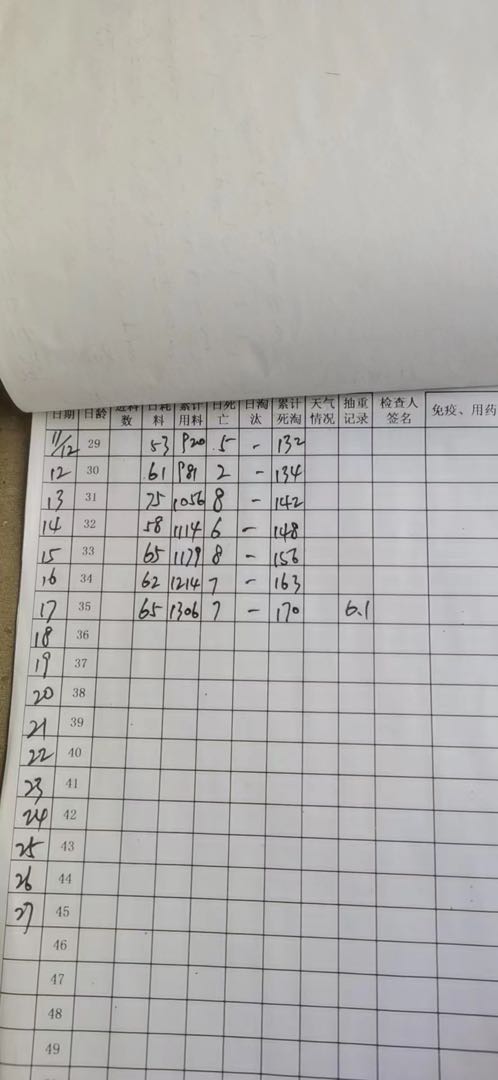 日期 日龄 进料数 日耗料 累计用料 日死亡 日淘汰 累计死淘 天气情况 抽重记录 检查人签名 免疫、用药
11/12 29 53 920 5 - 132
12 30 61 981 2 - 134
13 31 75 1056 8 - 142
14 32 58 1114 6 - 148
15 33 65 1179 8 - 156
16 34 62 1214 7 - 163
17 35 65 1306 7 - 170 6.1
18 36
19 37
20 38
21 39
22 40
23 41
24 42
25 43
26 44
27 45
46
47
48
49